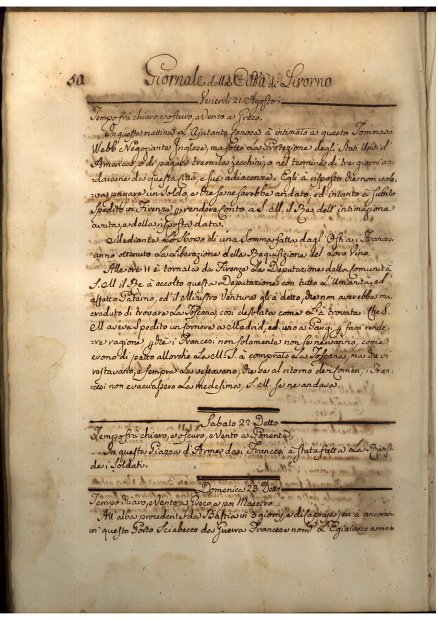 50 Giornale della Città di Livorno
Venerdì 21. Agosto
Tempo frà chiaro, e oscuro, e Vento a Greco.
In questa mattina L'Ajutante à intimato a questo Tommaso
Webb Negoziante Inglese, ma sotto La Protezione degli Stati Uniti d'
America, o di pagare tremila zecchini, o nel termine di tre giorni an-
darsene da questa Città, e sue adiacenze. Egli à risposto che non vole-
va pagare un Soldo, e che se ne sarebbe andato, ed intanto à subito
Spedito in Firenze p. rendere Conto a S. M. il Rè dell'intimazione
avuta, e della risposta data.
Mediante Lo Sborso di una Somma fatta dagl'
anno ottenuto La Liberazione della Requisizione del Loro Vino.
Alle ore 11 è tornata da Firenze La Deputazione della Comunità
S. M. il Rè à accolto questa Deputazione con tutta L'Umanità, ed
affetto Paterno, ed il Ministro Ventura gli à detto, che non averebbe mai
creduto di trovare La Toscana, così desolata come L'à trovata: Che S.
M. aveva Spedito un Corriere a Madrid, ed uno a Parigi p. farsi rende-
re ragione p. che i Francesi non solamente non se ne vanno, come
erono di patto allorchè La M. S. à comprato La Toscana, ma che vi
restavano, e sempre La vessavano, che se al ritorno dei Corrieri, i Fran-
cesi non evacuassero La medesima, S. M. se ne andava.
Sabato 22. Detto
Tempo frà chiaro, e oscuro, e Vento a Ponente.
In questa Piazza d'Arme dai Francesi è stata fatta La
dei Soldati.
Domenica 23. Detto
Tempo chiaro, e Vento a Greco, e poi Maestro.
All'alba procedente da Bastia in 3 giorni, e
in questo Porto Sciabecco da Guerra Francese nom.° L'Egiziano armato